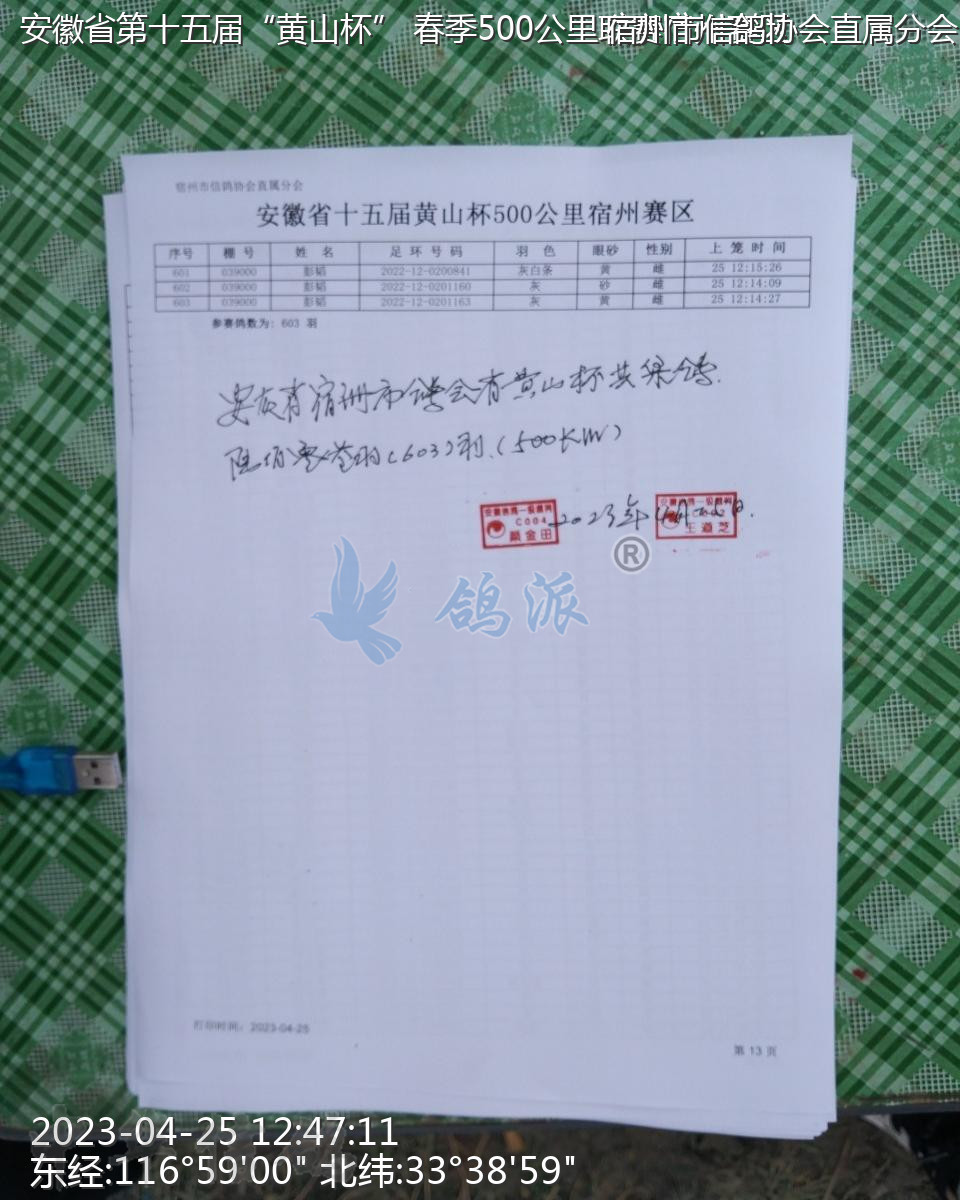 安徽省第十五届“黄山杯” 春季500公里联赛
宿州市信鸽协会直属分会
宿州市信鸽协会直属分会
安徽省十五届黄山杯500公里宿州赛区
序号 棚 号 姓 名 足 环 号 码 羽 色 眼砂 性别 上 笼 时 间
601 039000 彭韬 2022-12-0200841 灰白条 黄 雌 25 12:15:26
602 039000 彭韬 2022-12-0201160 灰 砂 雌 25 12:14:09
603 039000 彭韬 2022-12-0201163 灰 黄 雌 25 12:14:27
参赛鸽数为: 603 羽
宿州市 会 黄山杯共
陆佰零叁羽(603)羽.(500KM)
C004
顾金田
2023年4月25日.
王道芝
鸽派®
打印时间: 2023-04-25
第 13 页
2023-04-25 12:47:11
东经:116°59'00" 北纬:33°38'59"